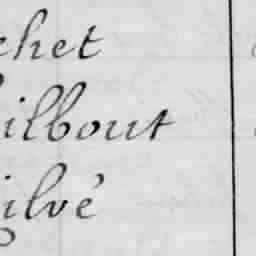 chet
ilbout
ilvé